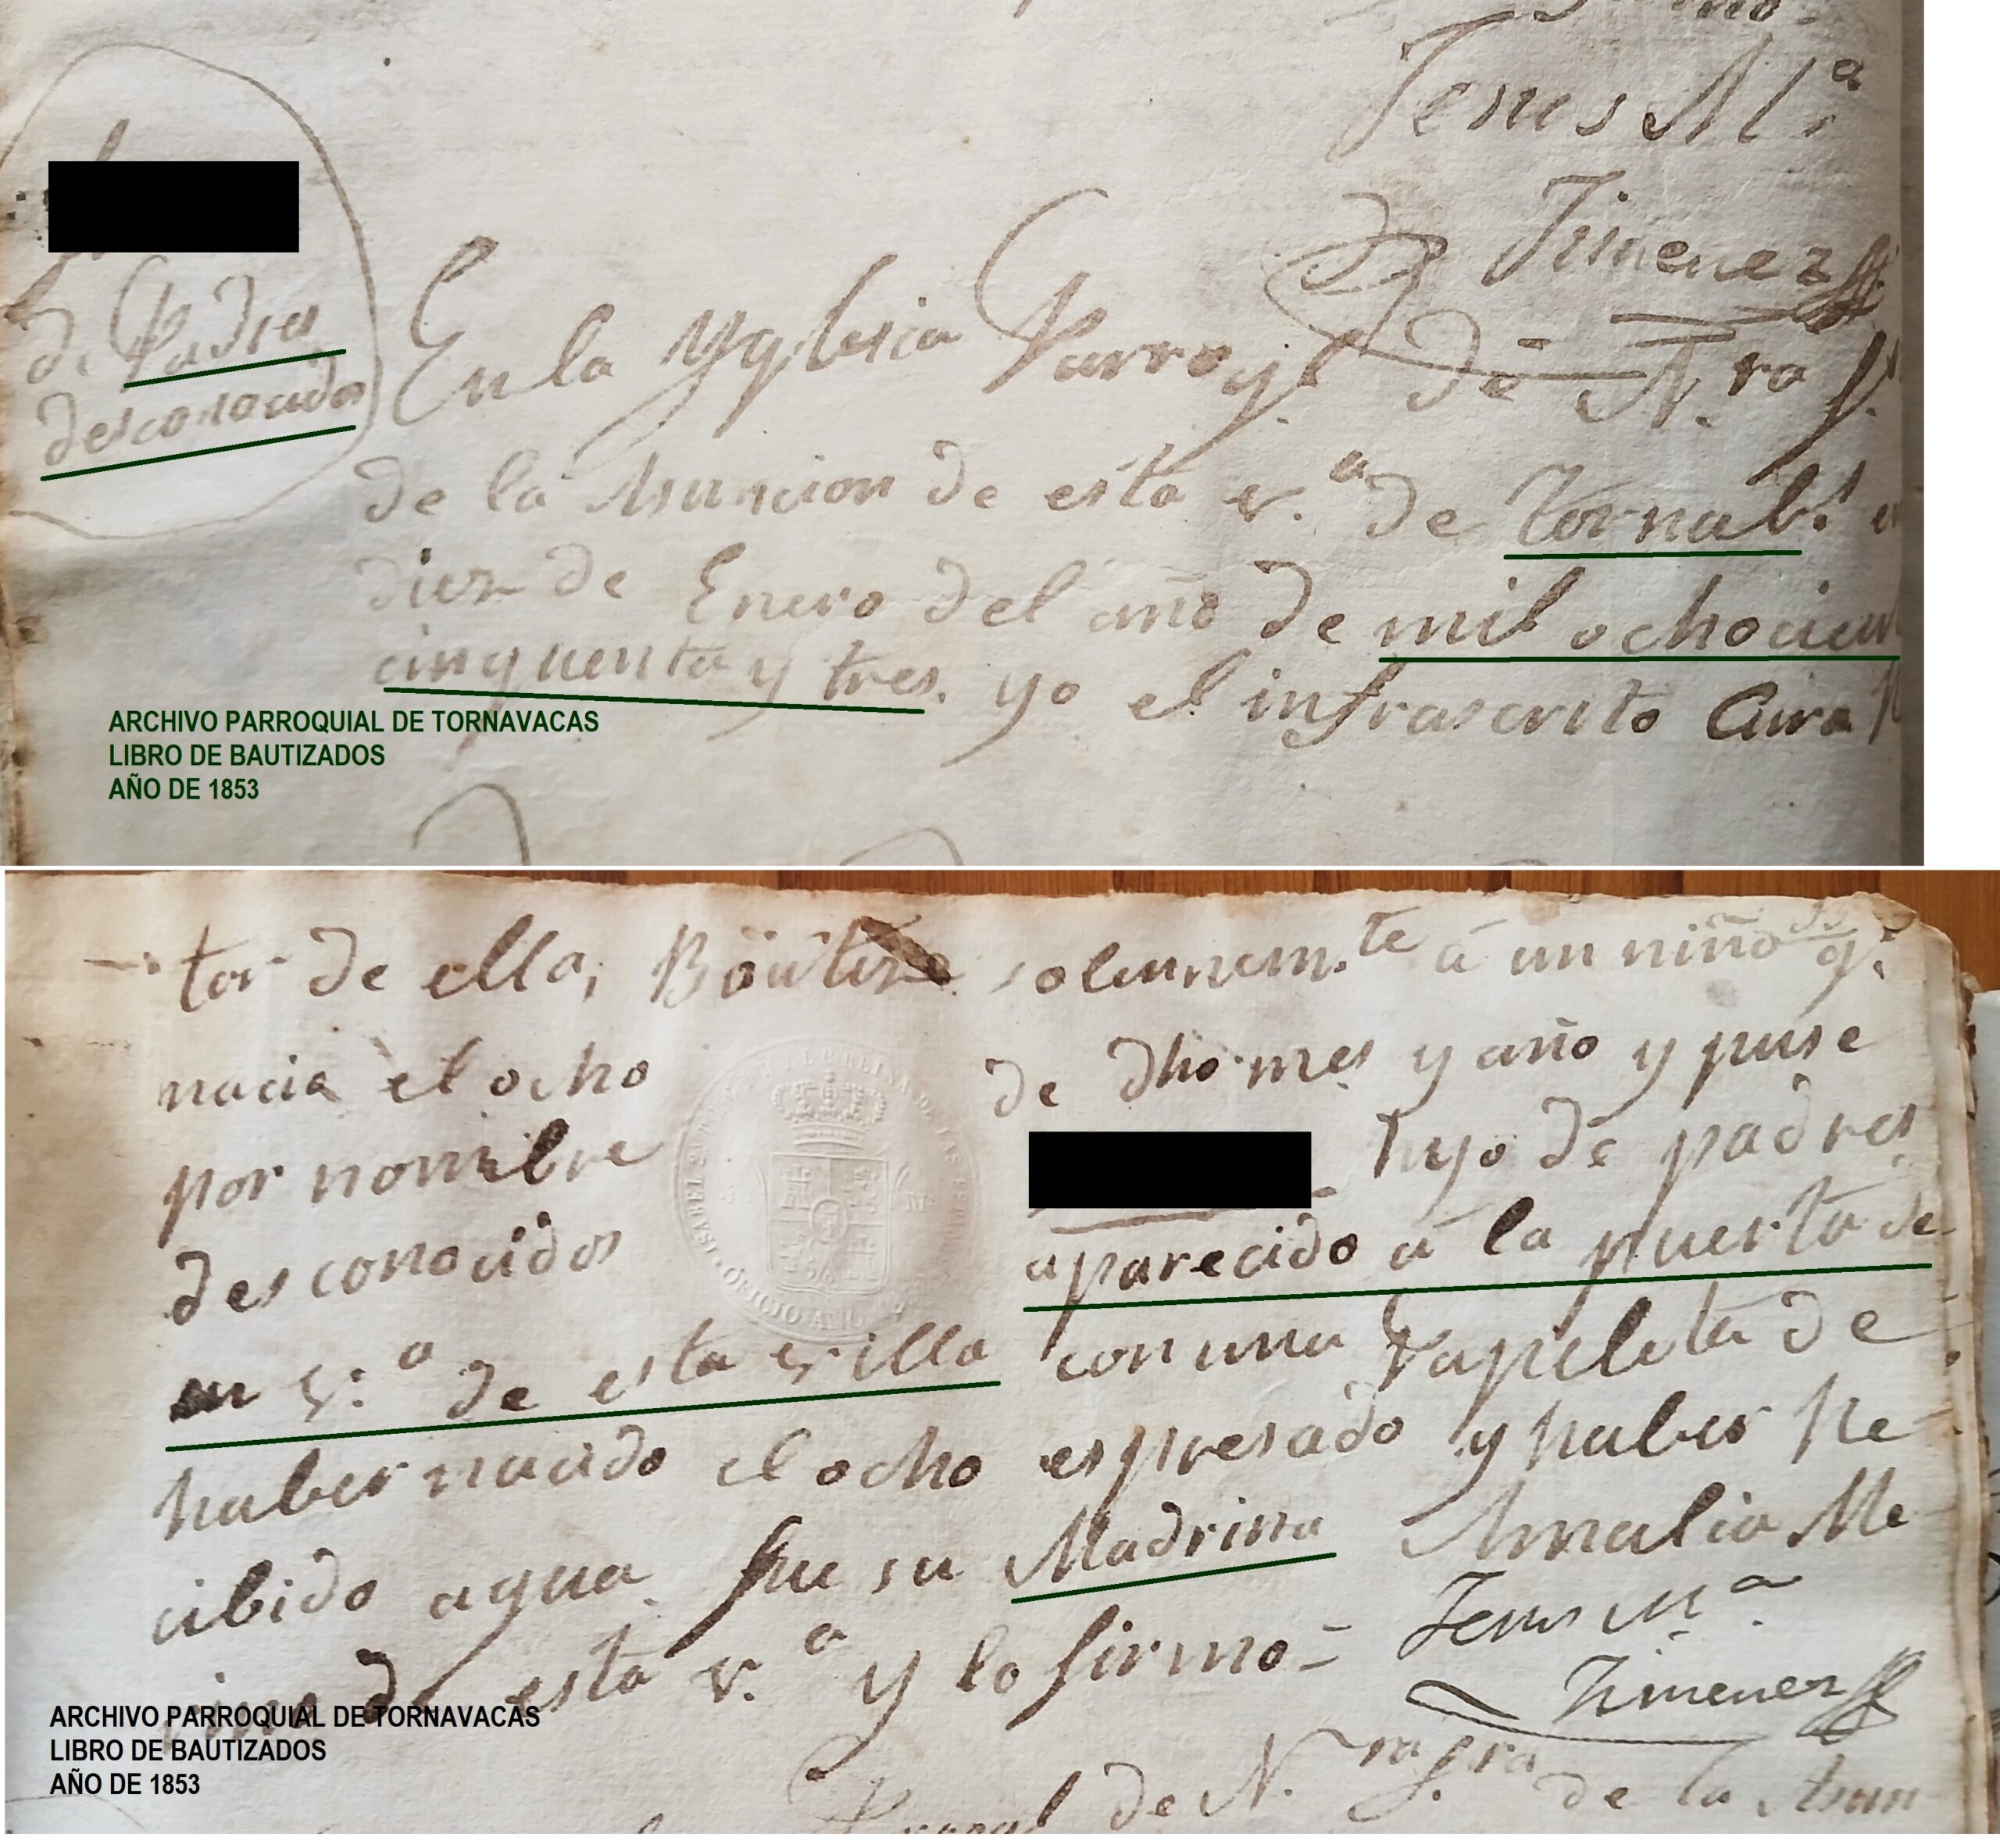 Jesus M.ª
Jimenez
de Padres
desconocidos
En la Yglesia Parroq.l de N.ra S.
de la Asuncion de esta v.ª de Tornab.s
diez de Enero del año de mil ochocien
cinquenta y tres. yo el infrascrito Cura
ARCHIVO PARROQUIAL DE TORNAVACAS
LIBRO DE BAUTIZADOS
AÑO DE 1853
tor de ella, Bautizé solemnem.te á un niño q.
nacia el ocho de dho mes y año y puse
por nombre hijo de padres
desconocidos aparecido á la puerta de
un v.º de esta villa con una Papeleta de
haber nacido el ocho espresado y haber Re
cibido agua. fue su Madrina Amalia Me
de esta v.ª y lo firmo= Jesus M.ª
Jimenez
ARCHIVO PARROQUIAL DE TORNAVACAS
LIBRO DE BAUTIZADOS
AÑO DE 1853
de N.ra S.ra de la Asun